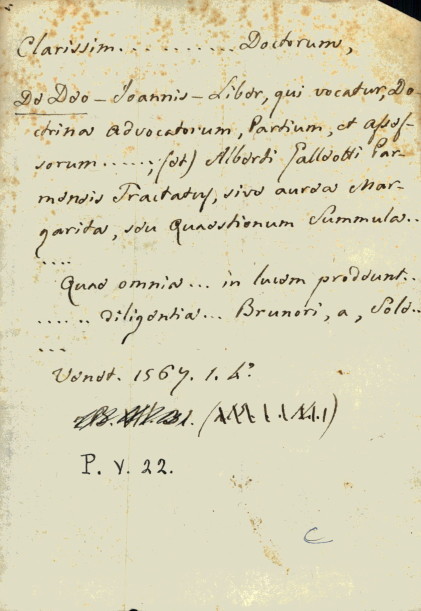 Clarissim.......... Doctorum,
De Deo - Joannis - Liber, qui vocatur, Do-
ctrina Advocatorum, Partium, et Asses-
sorum.....; (et) Alberti Galeotti Par-
mensis Tractatus, sive aurea Mar-
garita, seu Quaestionum Summula..
....
Quae omnia... in lucem prodeunt..
...... diligentia... Brunori, a, Sole..
...
Venet. 1567. 1. 4.º
P. V. 22.
C